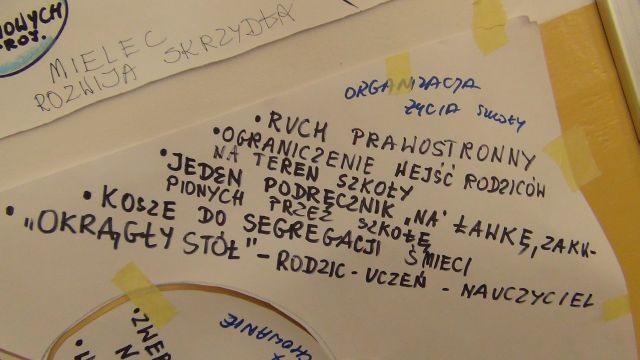 NOWYCH
MIELEC
ROZWIJA SKRZYDŁA
ORGANIZACJA
ŻYCIA SZKOŁY
• RUCH PRAWOSTRONNY
• OGRANICZENIE WEJŚĆ RODZICÓW
NA TEREN SZKOŁY
• JEDEN PODRĘCZNIK „NA" ŁAWKĘ, ZAKU-
PIONYCH PRZEZ SZKOŁĘ
• KOSZE DO SEGREGACJI ŚMIECI
• „OKRĄGŁY STÓŁ" - RODZIC - UCZEŃ - NAUCZYCIEL